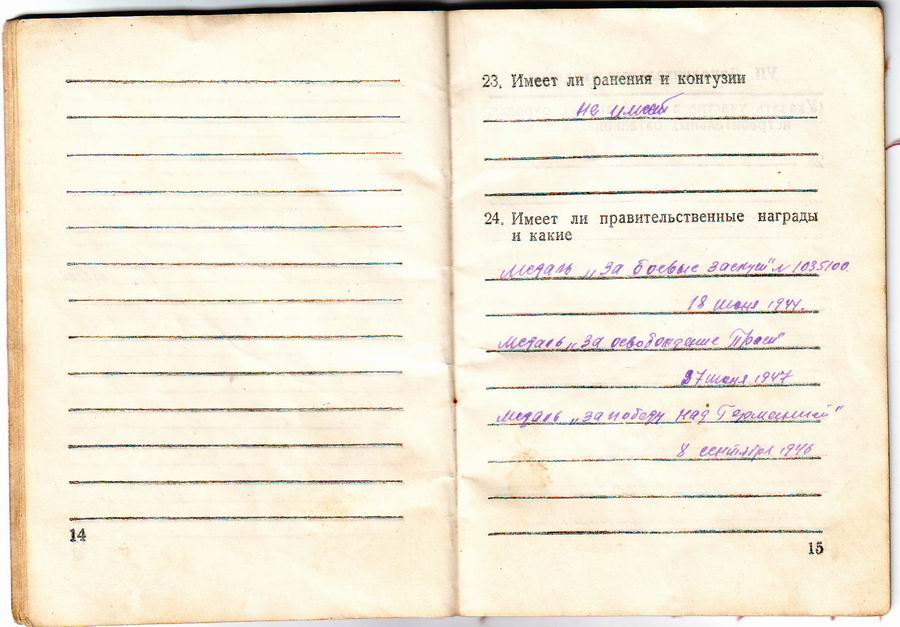 23. Имеет ли ранения и контузии
не имеет
24. Имеет ли правительственные награды
и какие
медаль „За боевые заслуги" № 1035100
18 июня 1944.
медаль „За освобождение Праги"
27 июня 1947
медаль „За победу над Германией"
8 сентября 1946
14
15